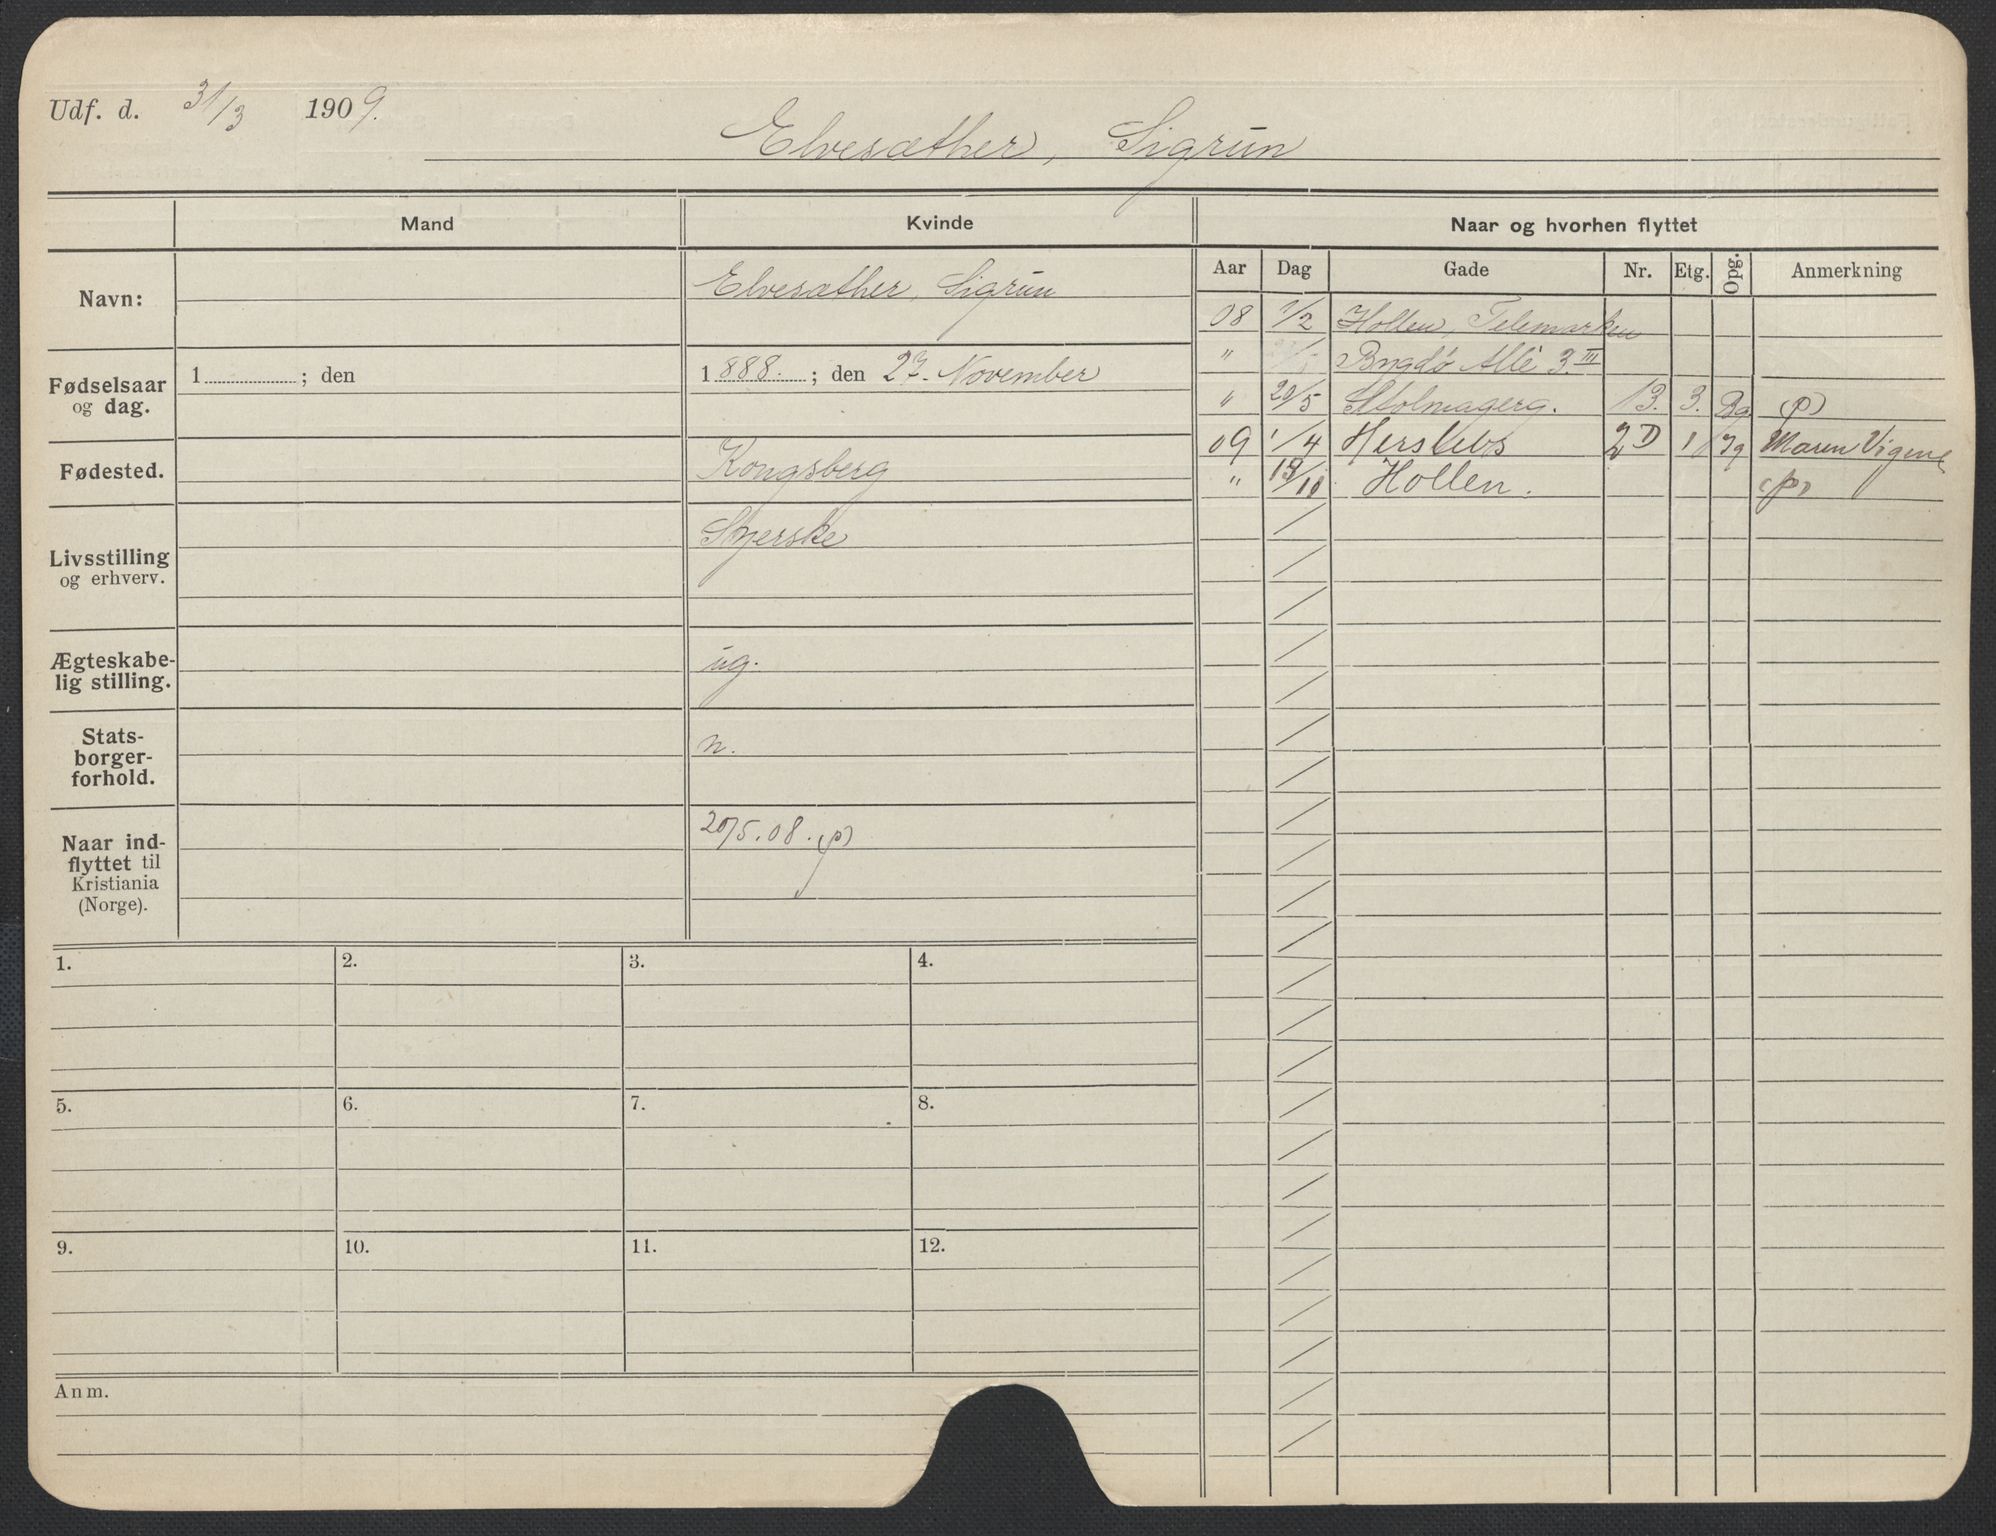 Udf. d. 31/3 1909.
Elvesæther, Sigrun
Mand Kvinde Naar og hvorhen flyttet
Aar Dag Gade Nr. Etg. Opg. Anmerkning
Navn: Elvesæther, Sigrun
08 1/2 Hollen, Telemarken
" Bygdø Allè 3. III
Fødselsaar og dag. 1 ; den 1888. ; den 27. November
" 20/5 Stolmagerg. 13. 3. Bg (p)
09 1/4 Herslebs 2D 1 Maren Vigene
Fødested. Kongsberg
" 18/10 Hollen. (p)
Livsstilling og erhverv. Syerske
Ægteskabe-
lig stilling. ug.
Stats-
borger-
forhold. n.
Naar ind-
flyttet til
Kristiania
(Norge). 20/5.08. (p)
1. 2. 3. 4.
5. 6. 7. 8.
9. 10. 11. 12.
Anm.